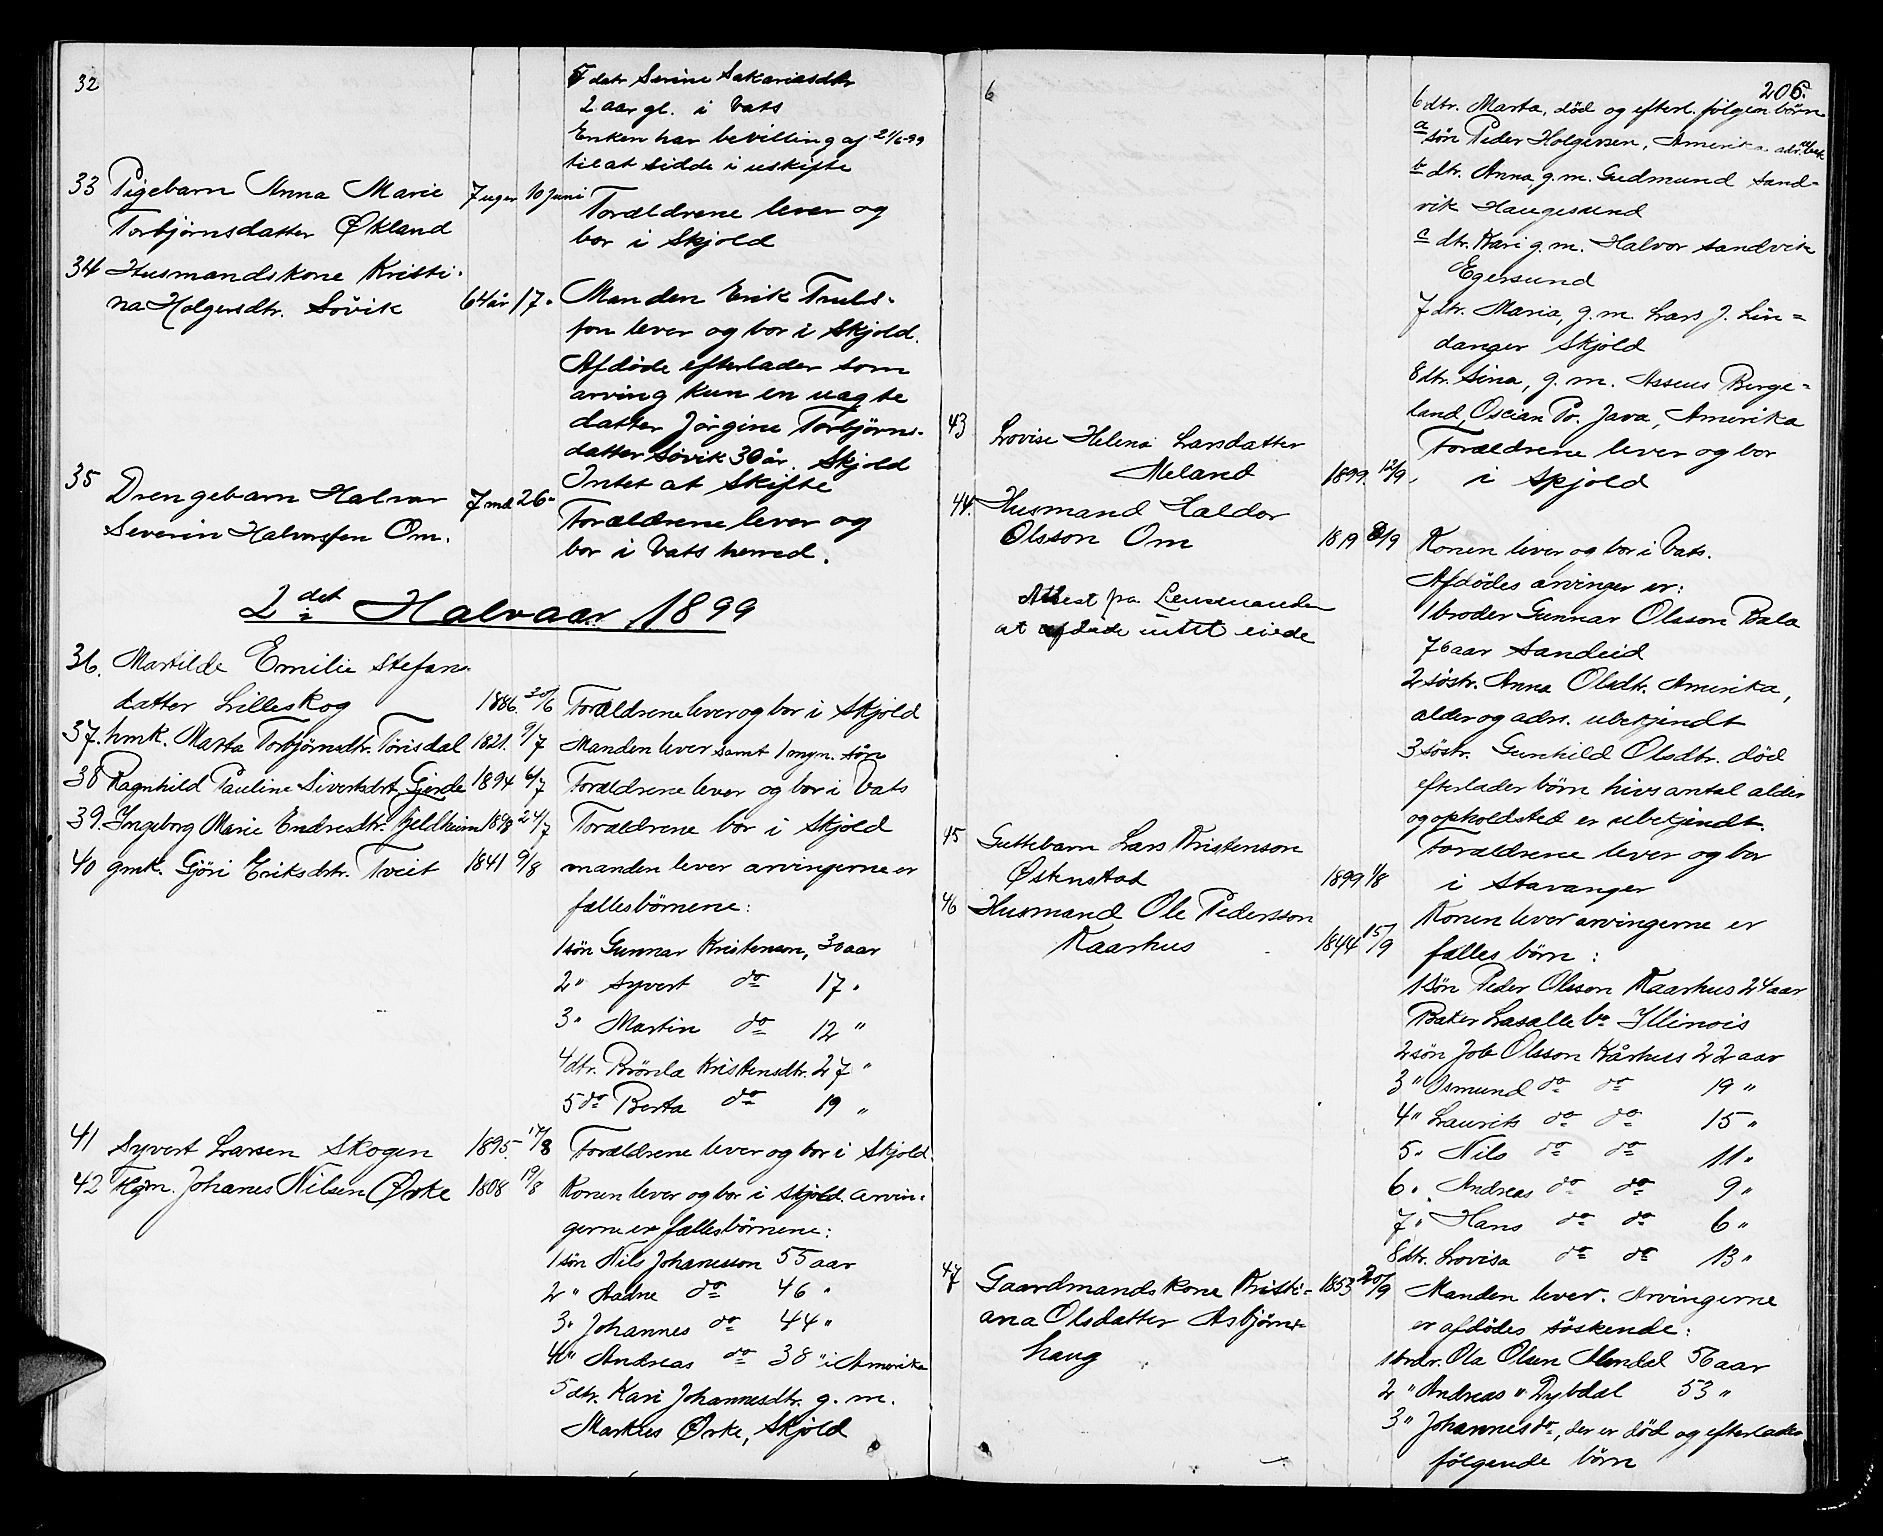 32
5 datr Serine Sakariasdtr
2 aar gl. i Vats
Enken har bevilling af 21/6-99
til at sidde i uskifte
33 Pigebarn Anna Marie 7 uger 10 Juni Forældrene lever og
Torbjørnsdatter Økland bor i Skjold
34 Husmandskone Kristi-
na Holgersdtr. Søvik 64 år 17 " Manden Erik Truls-
son lever og bor i Skjold.
Afdøde efterlader som
arving kun en uægte
datter Jørgine Torbjørns-
datter Søvik 30 år. Skjold
Intet at Skifte
35 Drengebarn Halvar 7 md 26 " Forældrene lever og
Severin Halvorsen Om. bor i Vats herred.
2det Halvaar 1899
36. Martilde Emilie Stefans-
datter Lilleskog 1886. 30/6 Forældrene lever og bor i Skjold
37. hmk. Marta Torbjørnsdtr. Tørisdal 1821. 9/7 Manden lever samt 1 myn. søn
38 Ragnhild Pauline Sivertsdtr Gjerde 1894 6/7 Forældrene lever og bor i Vats
39. Ingeborg Marie Endresdtr. Fjeldheim 1898 24/7 Forældrene bor i Skjold
40 gmk. Gjøri Eriksdtr. Tveit 1841 9/8 manden lever arvingerne er
fællesbørnene:
1 søn Gunnar Kristensen, 30 aar
2 " Syvert do 17 "
3 " Martin do 12 "
4 dtr. Brønla Kristensdtr. 27 "
5 do Berta do 19 "
41 Syvert Larsen Skogen 1895. 17/8 Forældrene lever og bor i Skjold.
42 Fgm. Johanes Nilsen Ørke 1808 19/8 Konen lever og bor i Skjold. arvin-
gerne er fællesbørnene:
1 søn Nils Johanesson 55 aar
2 " Aadne do 46 "
3 " Johannes do 44 "
4 " Andreas do 38 " i Amerika
5 dtr. Kari Johannesdtr. g. m.
Markus Ørke, Skjold
6
206.
6 dtr. Marta, død og efterl. følgen børn
a søn Peder Holgersen, Amerika adr.
b dtr. Anna g. m. Gudmund Sand-
vik Haugesund
c dtr. Kari g. m. Halvor Sandvik
Egersund
7 dtr. Maria, g. m. Lars J. Lin-
danger Skjold
8 dtr. Sina, g. m. Asseus Berge-
land, Oscian Po. Java, Amerika
43 Lovise Helena Larsdatter Forældrene lever og bor
Meland 1899 12/9. i Skjold
44. Husmand Haldor
Olsson Om 1819 8/9 Konen lever og bor i Vats.
Afdødes arvinger er:
Attest fra Lensmanden
at afdøde intet eiede
1 broder Gunnar Olsson Bala
76 aar Sandeid
2 søstr. Anna Olsdtr. Amerika,
alder og adrs. ubekjendt
3 søstr. Gunhild Olsdtr. død
efterlader børn hvis antal alder
og opholdsted er ubekjendt.
45 Guttebarn Lars Kristenson Forældrene lever og bor
Østenstad 1899 1/8 i Stavanger
46 Husmand Ole Pedersson Konen lever arvingerne er
Kaarhus 1844 15/9 fælles børn:
1 søn Peder Olsson Kaarhus 24 aar
Baker Lasalle Co Illinois
2 søn Job Olsson Kårhus 22 aar
3 " Osmund do do 19 "
4 " Laurits do do 15 "
5 " Nils do do 11 "
6 " Andreas do do 9 "
7 " Hans do do 6 "
8 dtr. Lovisa do do 13 "
47 Gaardmandskone Kristi- 1853 20/9 Manden lever. Arvingerne
ana Olsdatter Asbjørn- er afdødes søskende:
haug
1 brdr. Ola Olsen Mendal 56 aar
2 " Andreas " Dybdal 53 "
3 " Johannes do, der er død og efterlader
følgende børn